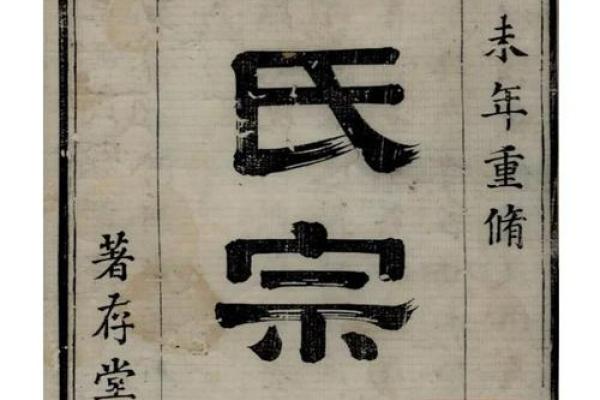 未年重脩
氏宗
著存堂